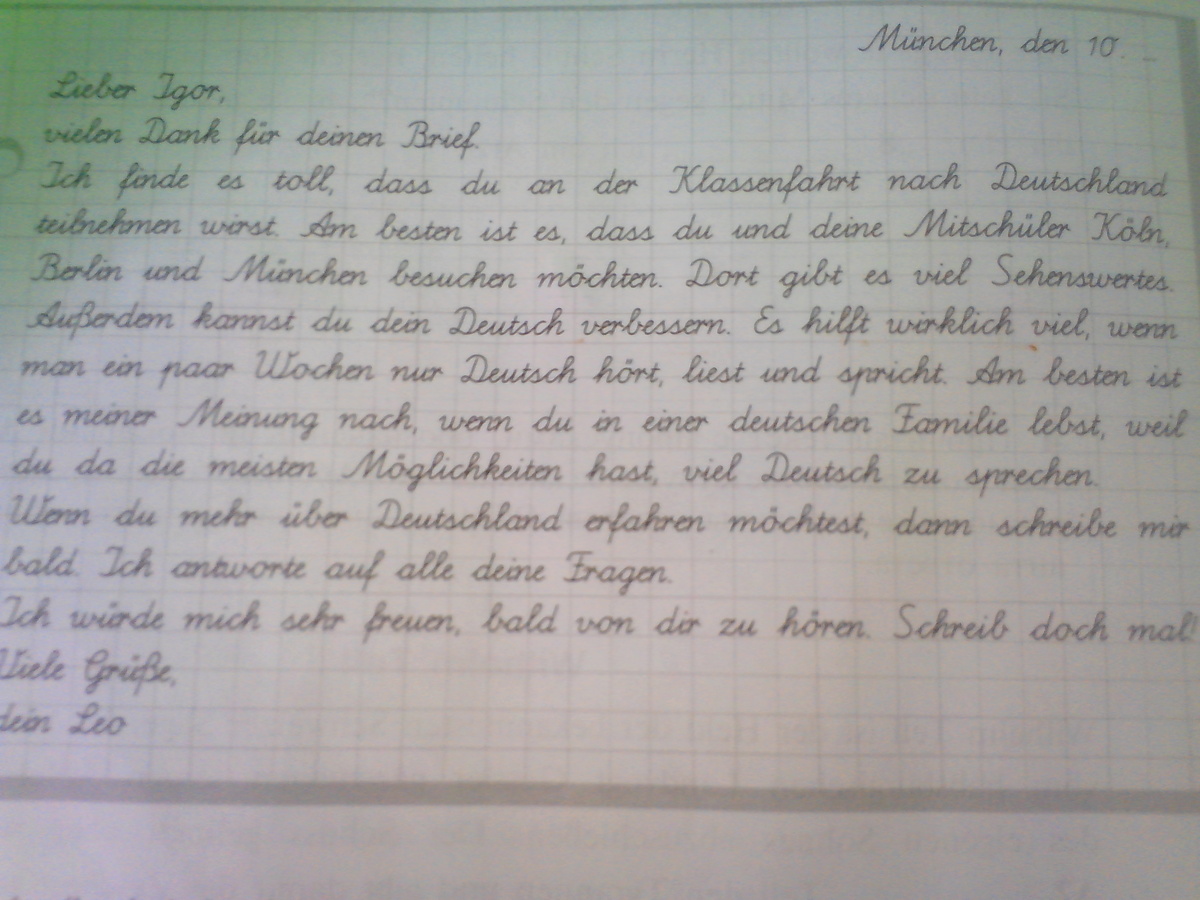 München, den 10. _
Lieber Igor,
vielen Dank für deinen Brief.
Ich finde es toll, dass du an der Klassenfahrt nach Deutschland
teilnehmen wirst. Am besten ist es, dass du und deine Mitschüler Köln,
Berlin und München besuchen möchten. Dort gibt es viel Sehenswertes.
Außerdem kannst du dein Deutsch verbessern. Es hilft wirklich viel, wenn
man ein paar Wochen nur Deutsch hört, liest und spricht. Am besten ist
es meiner Meinung nach, wenn du in einer deutschen Familie lebst, weil
du da die meisten Möglichkeiten hast, viel Deutsch zu sprechen.
Wenn du mehr über Deutschland erfahren möchtest, dann schreibe mir
bald. Ich antworte auf alle deine Fragen.
Ich würde mich sehr freuen, bald von dir zu hören. Schreib doch mal!
Viele Grüße,
dein Leo